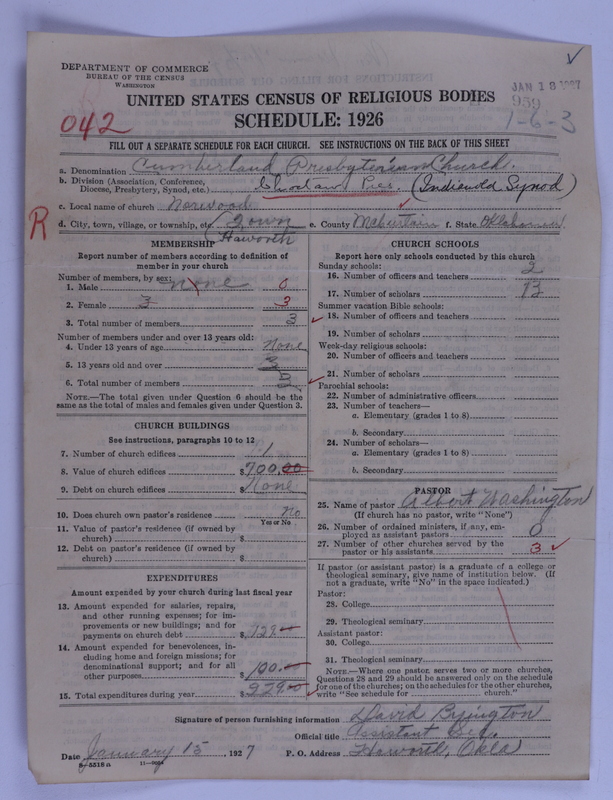 DEPARTMENT OF COMMERCE
BUREAU OF THE CENSUS
WASHINGTON
JAN 18 1927
959
1-6-3
042
UNITED STATES CENSUS OF RELIGIOUS BODIES
SCHEDULE: 1926
FILL OUT A SEPARATE SCHEDULE FOR EACH CHURCH. SEE INSTRUCTIONS ON THE BACK OF THIS SHEET
a. Denomination Cumberland Presbyterian Church.
b. Division (Association, Conference, Diocese, Presbytery, Synod, etc.) Choctaw Pres. (Indianola Synod)
c. Local name of church Norwood
R
d. City, town, village, or township, etc. Town Haworth e. County McCurtain f. State Oklahoma
MEMBERSHIP
Report number of members according to definition of
member in your church
Number of members, by sex:
1. Male none 0
2. Female 3 3
3. Total number of members 3
Number of members under and over 13 years old:
4. Under 13 years of age None
5. 13 years old and over 3
6. Total number of members 3
NOTE.—The total given under Question 6 should be
same as the total of males and females given under Question 3.
CHURCH BUILDINGS
See instructions, paragraphs 10 to 12
7. Number of church edifices 1
8. Value of church edifices $700.00
9. Debt on church edifices $ None
10. Does church own pastor's residence No
Yes or No
11. Value of pastor's residence (if owned by
church) $
12. Debt on pastor's residence (if owned by
church) $
EXPENDITURES
Amount expended by your church during last fiscal year
13. Amount expended for salaries, repairs,
and other running expenses; for im-
provements or new buildings; and for
payments on church debt $
14. Amount expended for benevolences, in-
cluding home and foreign missions; for
denominational support; and for all
other purposes $100.
15. Total expenditures during year $
CHURCH SCHOOLS
Report here only schools conducted by this church
Sunday schools:
16. Number of officers and teachers 2
17. Number of scholars 13
Summer vacation Bible schools:
18. Number of officers and teachers
19. Number of scholars
Week-day religious schools:
20. Number of officers and teachers
21. Number of scholars
Parochial schools:
22. Number of administrative officers
23. Number of teachers—
a. Elementary (grades 1 to 8)
b. Secondary
24. Number of scholars—
a. Elementary (grades 1 to 8)
b. Secondary
PASTOR
25. Name of pastor Albert Washington
(If church has no pastor, write "None")
26. Number of ordained ministers, if any, em-
ployed as assistant pastors 0
27. Number of other churches served by the
pastor or his assistants 3
If pastor (or assistant pastor) is a graduate of a college or
theological seminary, give name of institution below. (If
not a graduate, write "No" in the space indicated.)
Pastor:
28. College
29. Theological seminary
Assistant pastor:
30. College
31. Theological seminary
NOTE.—Where one pastor serves two or more churches,
Questions 28 and 29 should be answered only on the schedule
for one of the churches; on the schedules for the other churches,
write "See schedule for church."
Signature of person furnishing information David Byington
Official title Assistant Sec.
Date January 15 1927 P. O. Address Haworth, Okla
8-5518a 11-9054